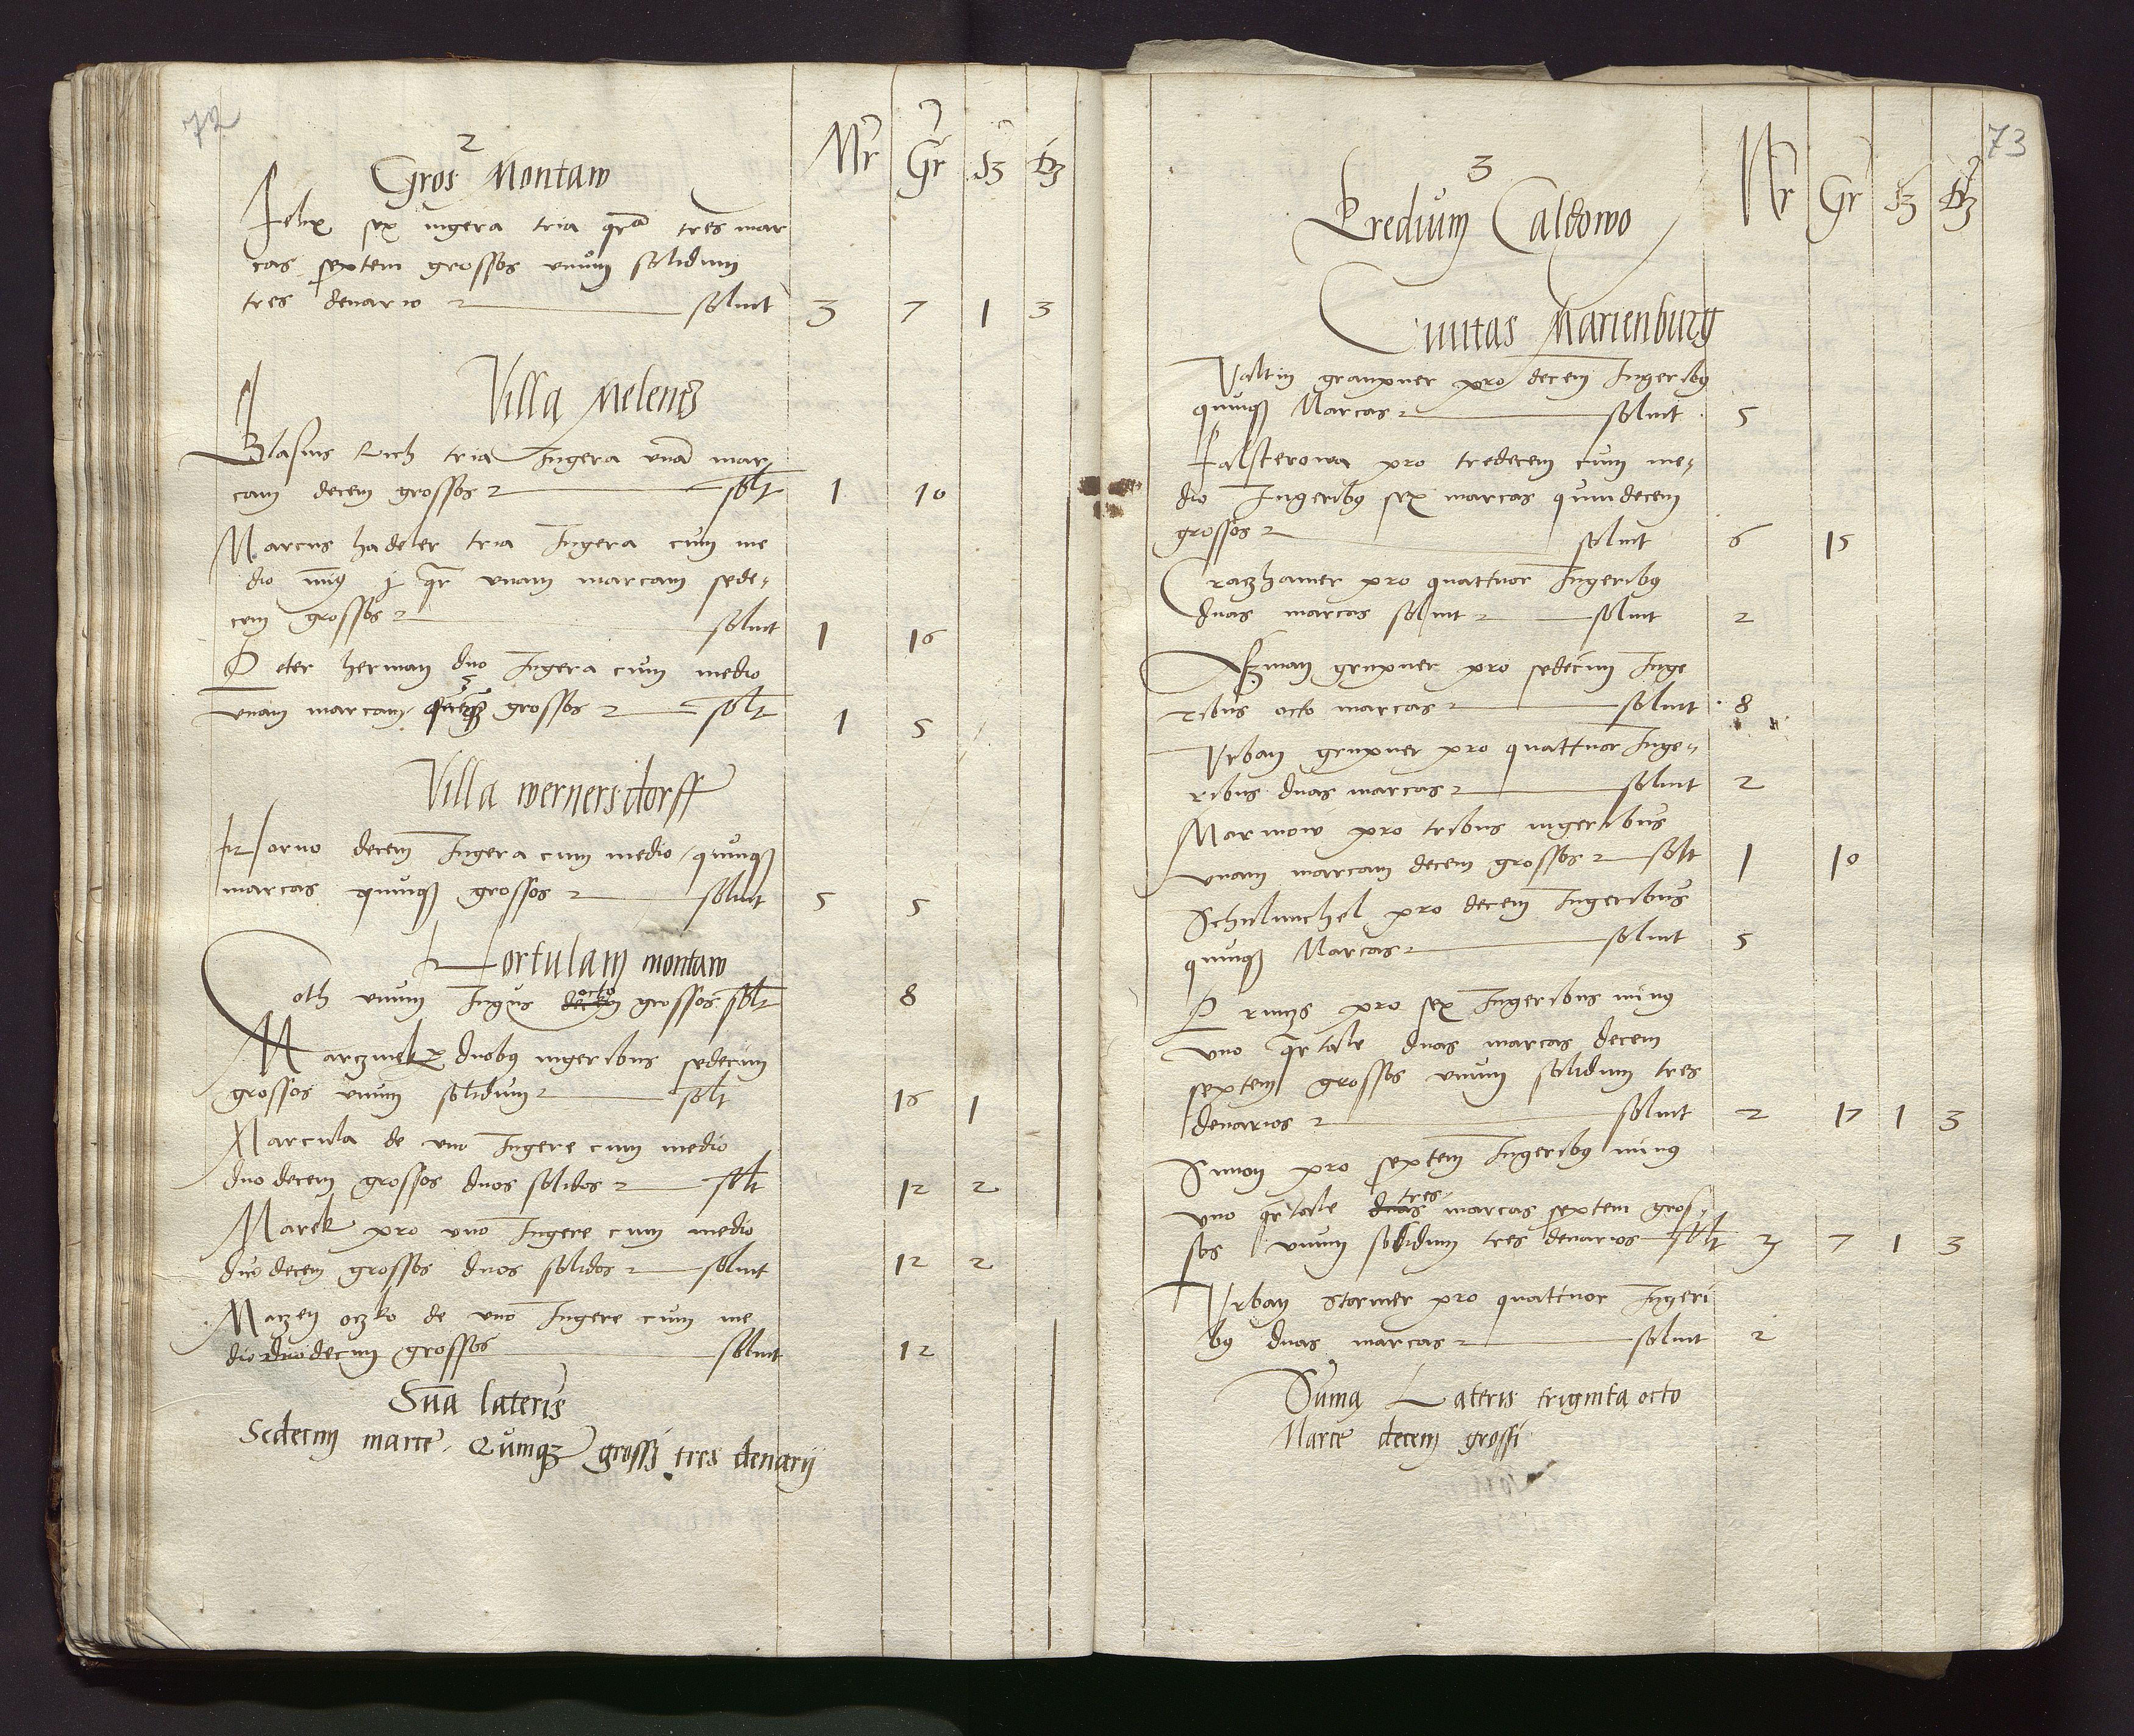 72
2
Gros Montaw
Mr Gr Sz Dz
Felix sex iugera tria qrta tres mar
cas septem grossos unum solidum
tres denario soluit 3 7 1 3
Villa Melentz
Blasius Rich tria Iugera una mar
cam decem grossos solt 1 10
Marcus hadeler tria Iugera cum me
dio min9 j qr unam marcam sede„
cem grossos soluit 1 16
Peter herman duo Iugera cum medio
unam marcam grossos solt 1 5
Villa wernersdorff
Horno decem Iugera cum medio quinqz
marcas quinqz grossos soluit 5 5
Hortulam montaw
Coth unum Iugus decem octo grossos solt 8
Marczinek duob9 iugeribus sedecim
grossos unum solidum solt 16 1
Marcula de uno Iugere cum medio
duodecem grossos duos solidos solt 12 2
Marek pro uno Iugere cum medio
duodecem grossos duos solidos soluit 12 2
Maczey oczko de uno Iugere cum me
dio duodecim grossos soluit 12
Sūa lateris
Sedecim marce. Quinqz grossi tres denarij
73
3
Mr Gr Sz Dz
Predium Caldowo
Ciuitas Marienburg
Valtin graupner pro decem Iugerib9
quinqz Marcas soluit 5
Falsterowa pro tredecem cum me„
dio Iugerib9 sex marcas quindecem
grossos soluit 6 15
Craczhamer pro quattuor Iugerib9
duas marcas soluit soluit 2
Asman grupner pro sedecim Iuge
ribus octo marcas soluit 8
Urban grupner pro quattuor Iuge„
ribus duas marcas soluit 2
Marnow pro tribus iugeribus
unam marcam decem grossos solt 1 10
Schulmichel pro decem Iugeribus
quinqz Marcas soluit 5
Princzs pro sex Iugeribus min9
uno qrtale duas marcas decem
septem grossos unum solidum tres
denarios soluit 2 17 1 3
Simon pro septem Iugerib9 min9
uno qrtale duas tres marcas septem gros„
sos unum solidum tres denarios solt 3 7 1 3
Urban Stormer pro quattuor Iugeri
b9 duas marcas soluit 2
Suma Lateris triginta octo
Marce decem grossi